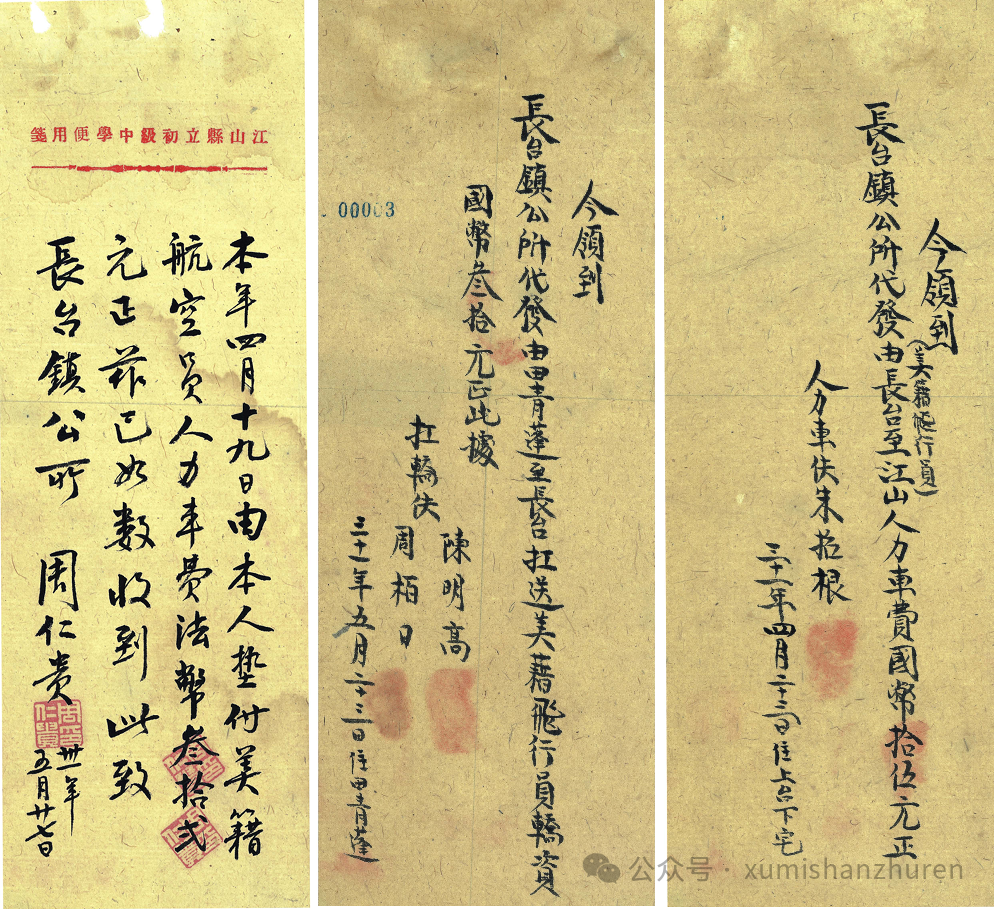 江山縣立初級中學便用箋
本年四月十九日由本人墊付美籍
航空員人力車費法幣叁拾弍
元正茲已如数收到此致
長台鎮公所
周仁贵
卅一年
五月廿七日
00003
今領到
長台鎮公所代發由田青蓬至長台扛送美藉飛行員轎資
國幣叁拾元正此據
扛轎伕
陳明高
周柏日
三十一年五月二十三日住田青蓬
今領到
(美籍飛行員)
長台鎮公所代發由長台至江山人力車費國幣拾伍元正
人力車伕朱招根
三十一年四月二十三日住上台下宅
公众号 · xumishanzhuren